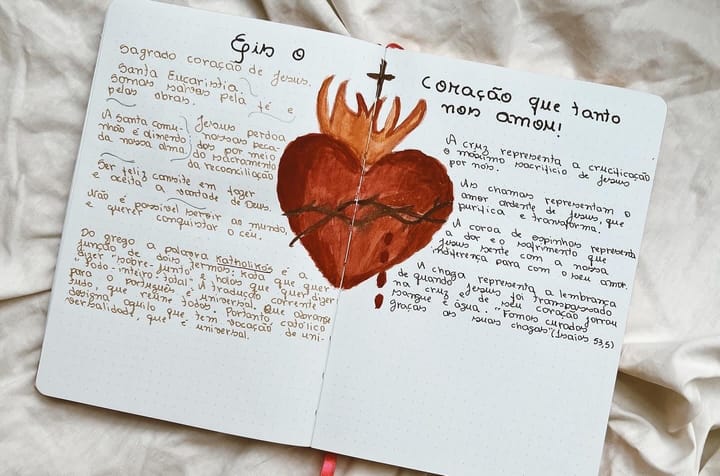 Eis o
sagrado coração de Jesus.
Santa Eucaristia.
somos salvos pela fé e
pelas obras.
A santa comu-
nhão é alimento
da nossa alma
Jesus perdoa
nossos peca-
dos por meio
do sacramento
da reconciliação
Ser feliz consite em fazer
e aceita a vontade de Deus.
Não é possivel servir ao mundo,
e querer conquistar o céu.
Do grego a palavra Katholikos é a
junção de dois termos: Kata que quer
dizer "sobre-junto", e holos que quer dizer
"todo-inteiro-total". A tradução corrente
para o português é universal. Que abrange
tudo, que reúne todos. Portanto católico
designa aquilo que tem vocação de uni-
versalidade, que é universal.
Coração que tanto
nos amou!
A cruz representa a crucificação
o máximo sacrificio de Jesus
por nós.
As chamas representam o
amor ardente de Jesus, que
purifica e transforma.
A coroa de espinhos representa
a dor e o sofrimento que
Jesus sente com a nossa
indiferença para com o seu amor.
A chaga representa a lembrança
de quando Jesus foi transpassado
na cruz e de seu coração jorrou
sangue e água. "Fomos curados
graças as suas chagas" (Isaios 53,5)